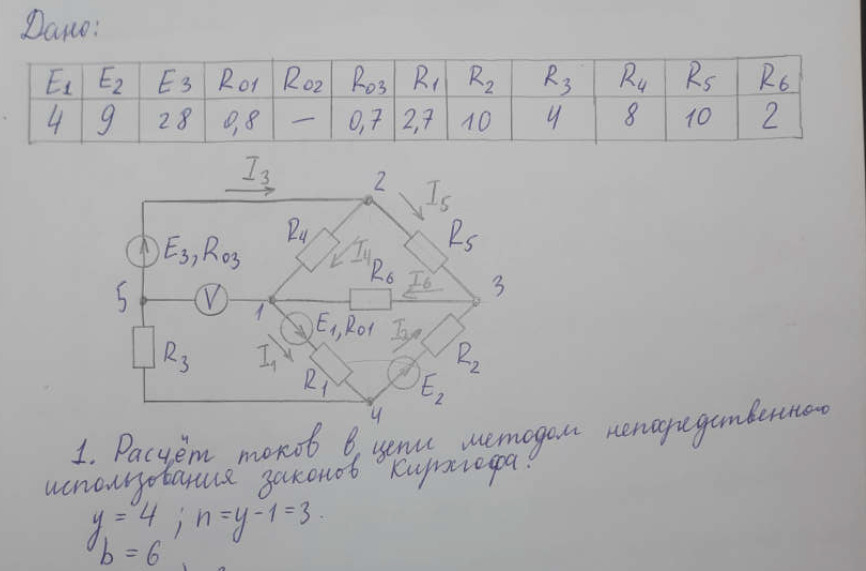 Дано:
E1 E2 E3 R01 R02 R03 R1 R2 R3 R4 R5 R6
4 9 28 0,8 — 0,7 2,7 10 4 8 10 2
I3
2
I5
R4
R5
E3, R03
I4
R6
I6
3
5
V
1
E1, R01
I2
R3
I1
R2
R1
E2
4
1. Расчёт токов в цепи методом непосредственного
использования законов Кирхгофа:
y = 4 ; n = y - 1 = 3.
b = 6